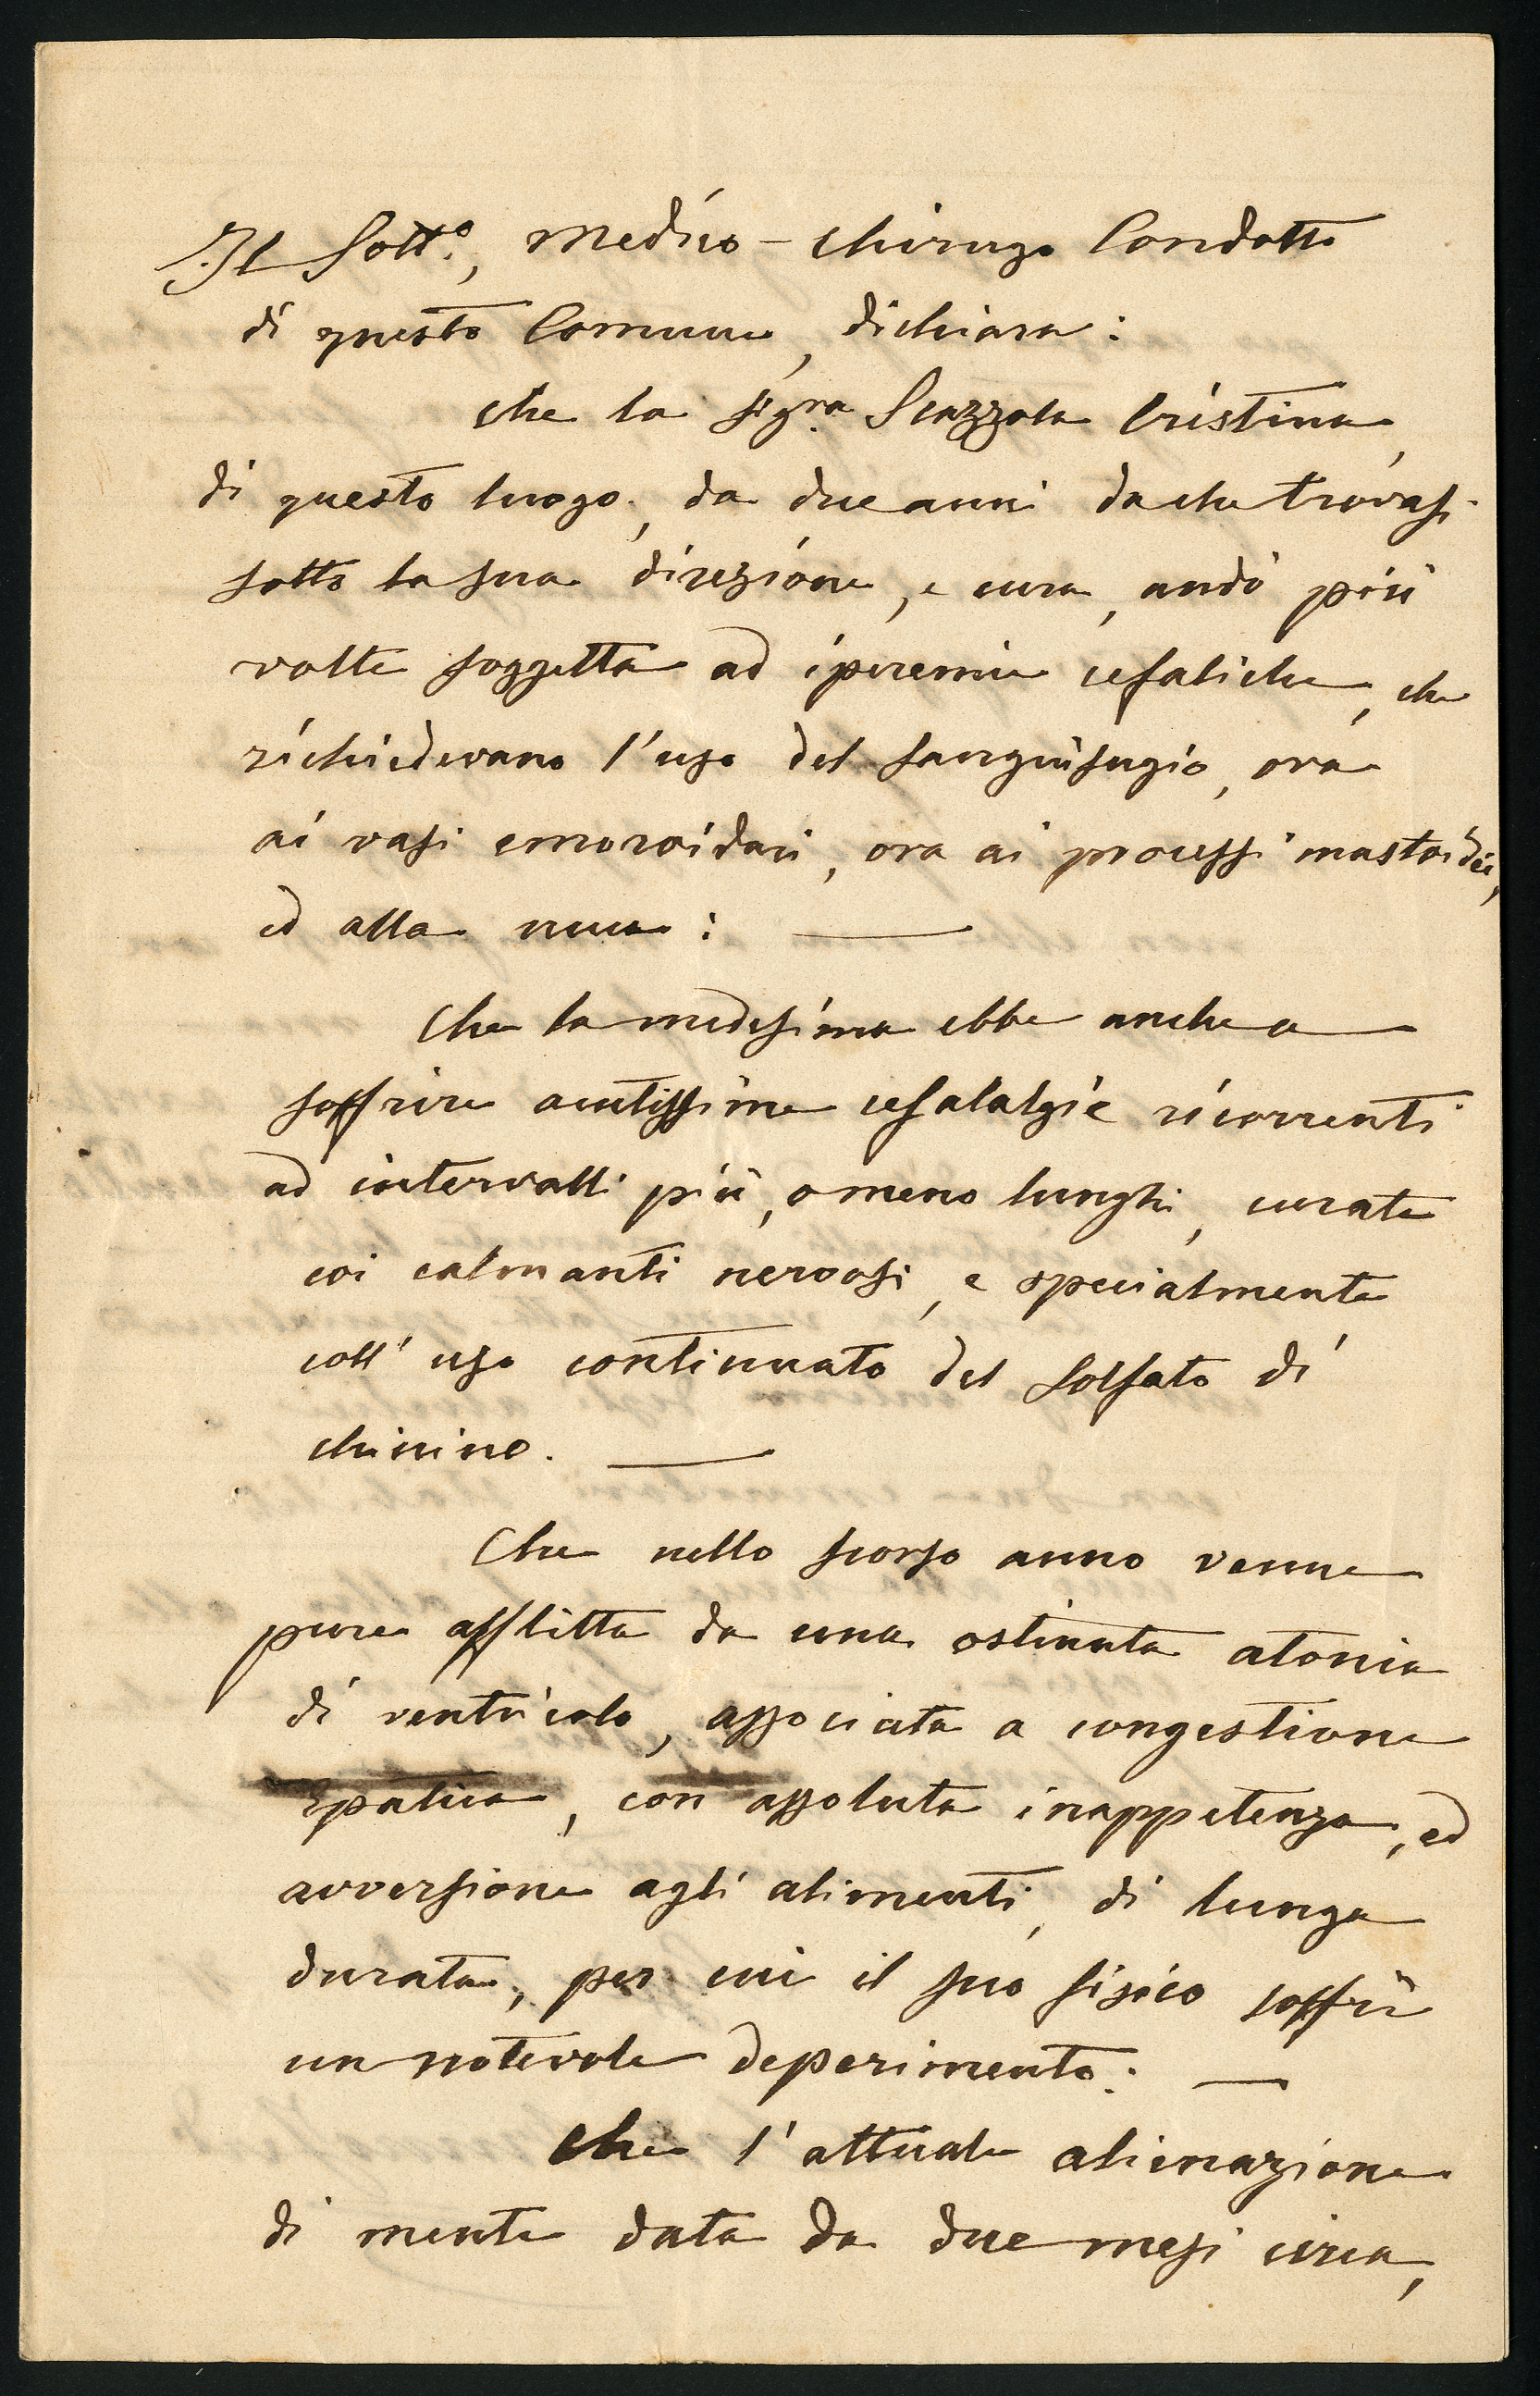 Il Sott.º, Medico-Chirurgo Condotto
di questo Comune, dichiara:
che la sig.ra Scazzola Cristina,
di questo luogo, da due anni dache trovasi
sotto la sua direzione, e cura, andò più
volte soggetta ad iperemie cefaliche, che
richiedevano l'uso del sanguisugio, ora
ai vasi emoroidari, ora ai processi mastoidei,
ed alla nuca: —
Che la medesima ebbe anche a
soffrire acutissime cefalalgie ricorrenti
ad intervalli più, o meno lunghi, curate
coi calmanti nervosi, e specialmente
coll' uso continuato del solfato di
chinino. —
Che nello scorso anno venne
pure afflitta da una ostinata atonia
di ventricolo, associata a congestione
epatica, con assoluta inappetenza, ed
avversione agli alimenti, di lunga
durata, per cui il suo fisico soffrì
un notevole deperimento: —
Che l'attuale alienazione
di mente data da due mesi circa,